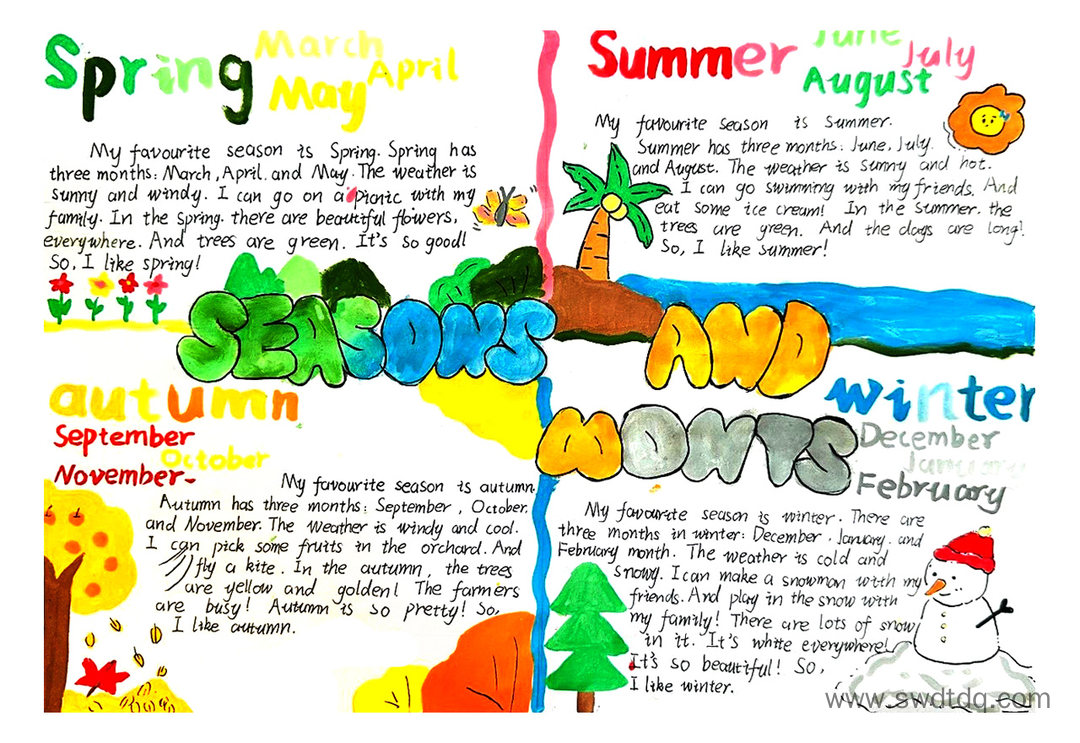 Spring
March
April
May
My favourite season is Spring. Spring has
three months: March, April. and May. The weather is
sunny and windy. I can go on a picnic with my
family. In the Spring. there are beautiful flowers,
everywhere. And trees are green. It's so good!
So, I like spring!
Summer
June
July
August
My favourite season is summer.
Summer has three months. June, July.
and August. The weather is sunny and hot.
I can go swimming with my friends. And
eat some ice cream! In the summer. the
trees are green. And the days are long!
So, I like summer!
SEASONS
AND
MONTS
autumn
September
October
November
My favourite season is autumn.
Autumn has three months: September, October.
and November. The weather is windy and cool.
I can pick some fruits in the orchard. And
fly a kite. In the autumn, the trees
are yellow and golden! The farmers
are busy! Autumn is so pretty! So,
I like autumn.
winter
December
January
February
My favourite season is winter. There are
three months in winter: December, January. and
February month. The weather is cold and
snowy. I can make a snowman with my
friends. And play in the snow with
my family! There are lots of snow
in it. It's white everywhere!
It's so beautiful! So,
I like winter.
www.swdtdq.com